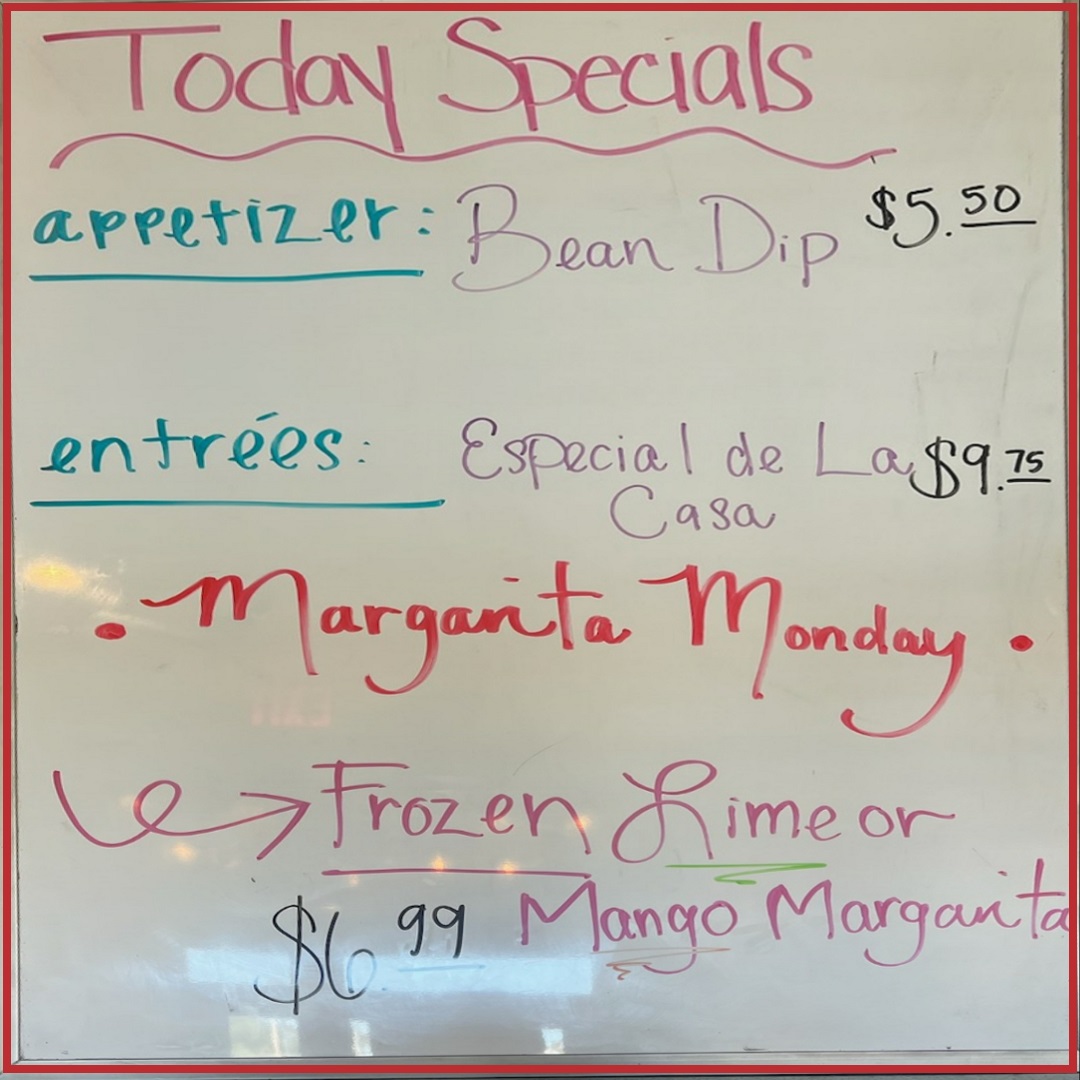 Today Specials
appetizer: Bean Dip $5.50
entrées: Especial de La $9.75
Casa
• Margarita Monday •
Frozen Lime or
$6.99 Mango Margarita